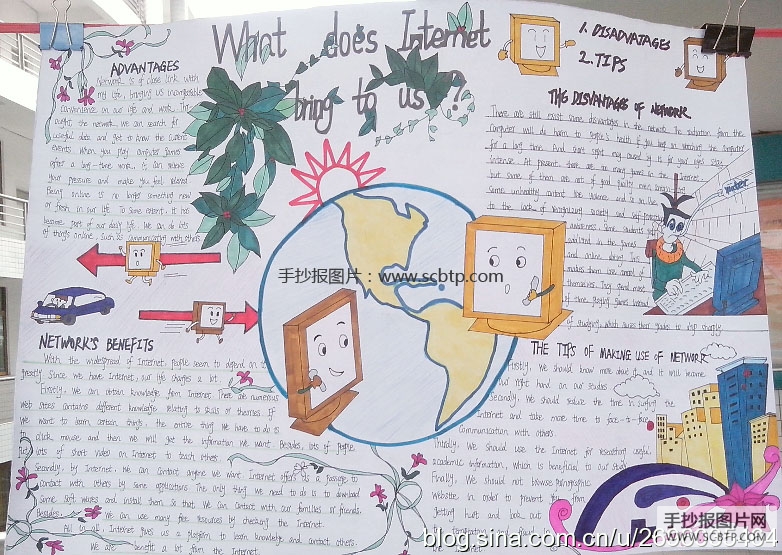 What does Internet
bring to us ?
1. DISADVATAGES
2. TIPS
ADVANTAGES
Network is of close link with
my life, bringing us incomparable
convenience on our life and work. Throught
the network we can search for
useful data and get to know the current
events. When you play computer games
after a long-time work, it can relieve
your pressure and make you feel relaxed
Being online is no longer something new
or fresh in our life. To some extent, it has
become part of our daily life. We can do lots
of things online, such as communicating with others.
THE DISVANTAGES OF NETWORK
There are still exist some disvantages in the network. The radiation from the
computer will do harm to people's health if you keep on watching the computer
for a long time. And short sight may caused by it for your eyes stay
intense. At present, there are so many games in the Internet,
but some of them are not of good quality, even
Some unhealthy content like violence and is on
to the lack of recognizing society and self
awareness. Some students
in the games
and online
makes them lose control of
themselves. They spend most
of time playing games instead
of studying, which cause their grades to drop sharply.
手抄报图片：www.scbtp.com
NETWORK'S BENEFITS
With the widespread of Internet, people seem to depend on it
greatly. Since we have Internet, our life changes a lot.
Firstly, we can obtain knowledge from Internet. There are numerous
web sites contains different knowledge relating to skills or themselves. If
we want to learn certain things, the entire thing we have to do is
to click mouse and then we will get the information we want. Besides, lots of people
put lots of short video on Internet to teach others.
Secondly, by Internet, we can contact anyone we want. Internet offers us a passage to
contact with others by some applications. The only thing we need to do is to download
some soft wares and install them so that we can contact with our families or friends.
Besides, we can use many free resources by checking the Internet.
All in all, Internet gives us a platform to learn knowledge and contact others.
We are benefit a lot from the Internet.
THE TIPS OF MAKING USE OF NETWORK
Firstly, we should know more about it and it will become
our right hand on our studies
Secondly, we should reduce the time in surfing the
Internet and take more time to face-to-face
communication with others.
Thirdly, we should use the Internet for researching useful
academic information, which is beneficial to our study
Finally, we should not browse pornographic
website in order to prevent you from
getting hurt and look out
blog.sina.com.cn/u/
手抄报图片网
WWW.SCBTP.COM